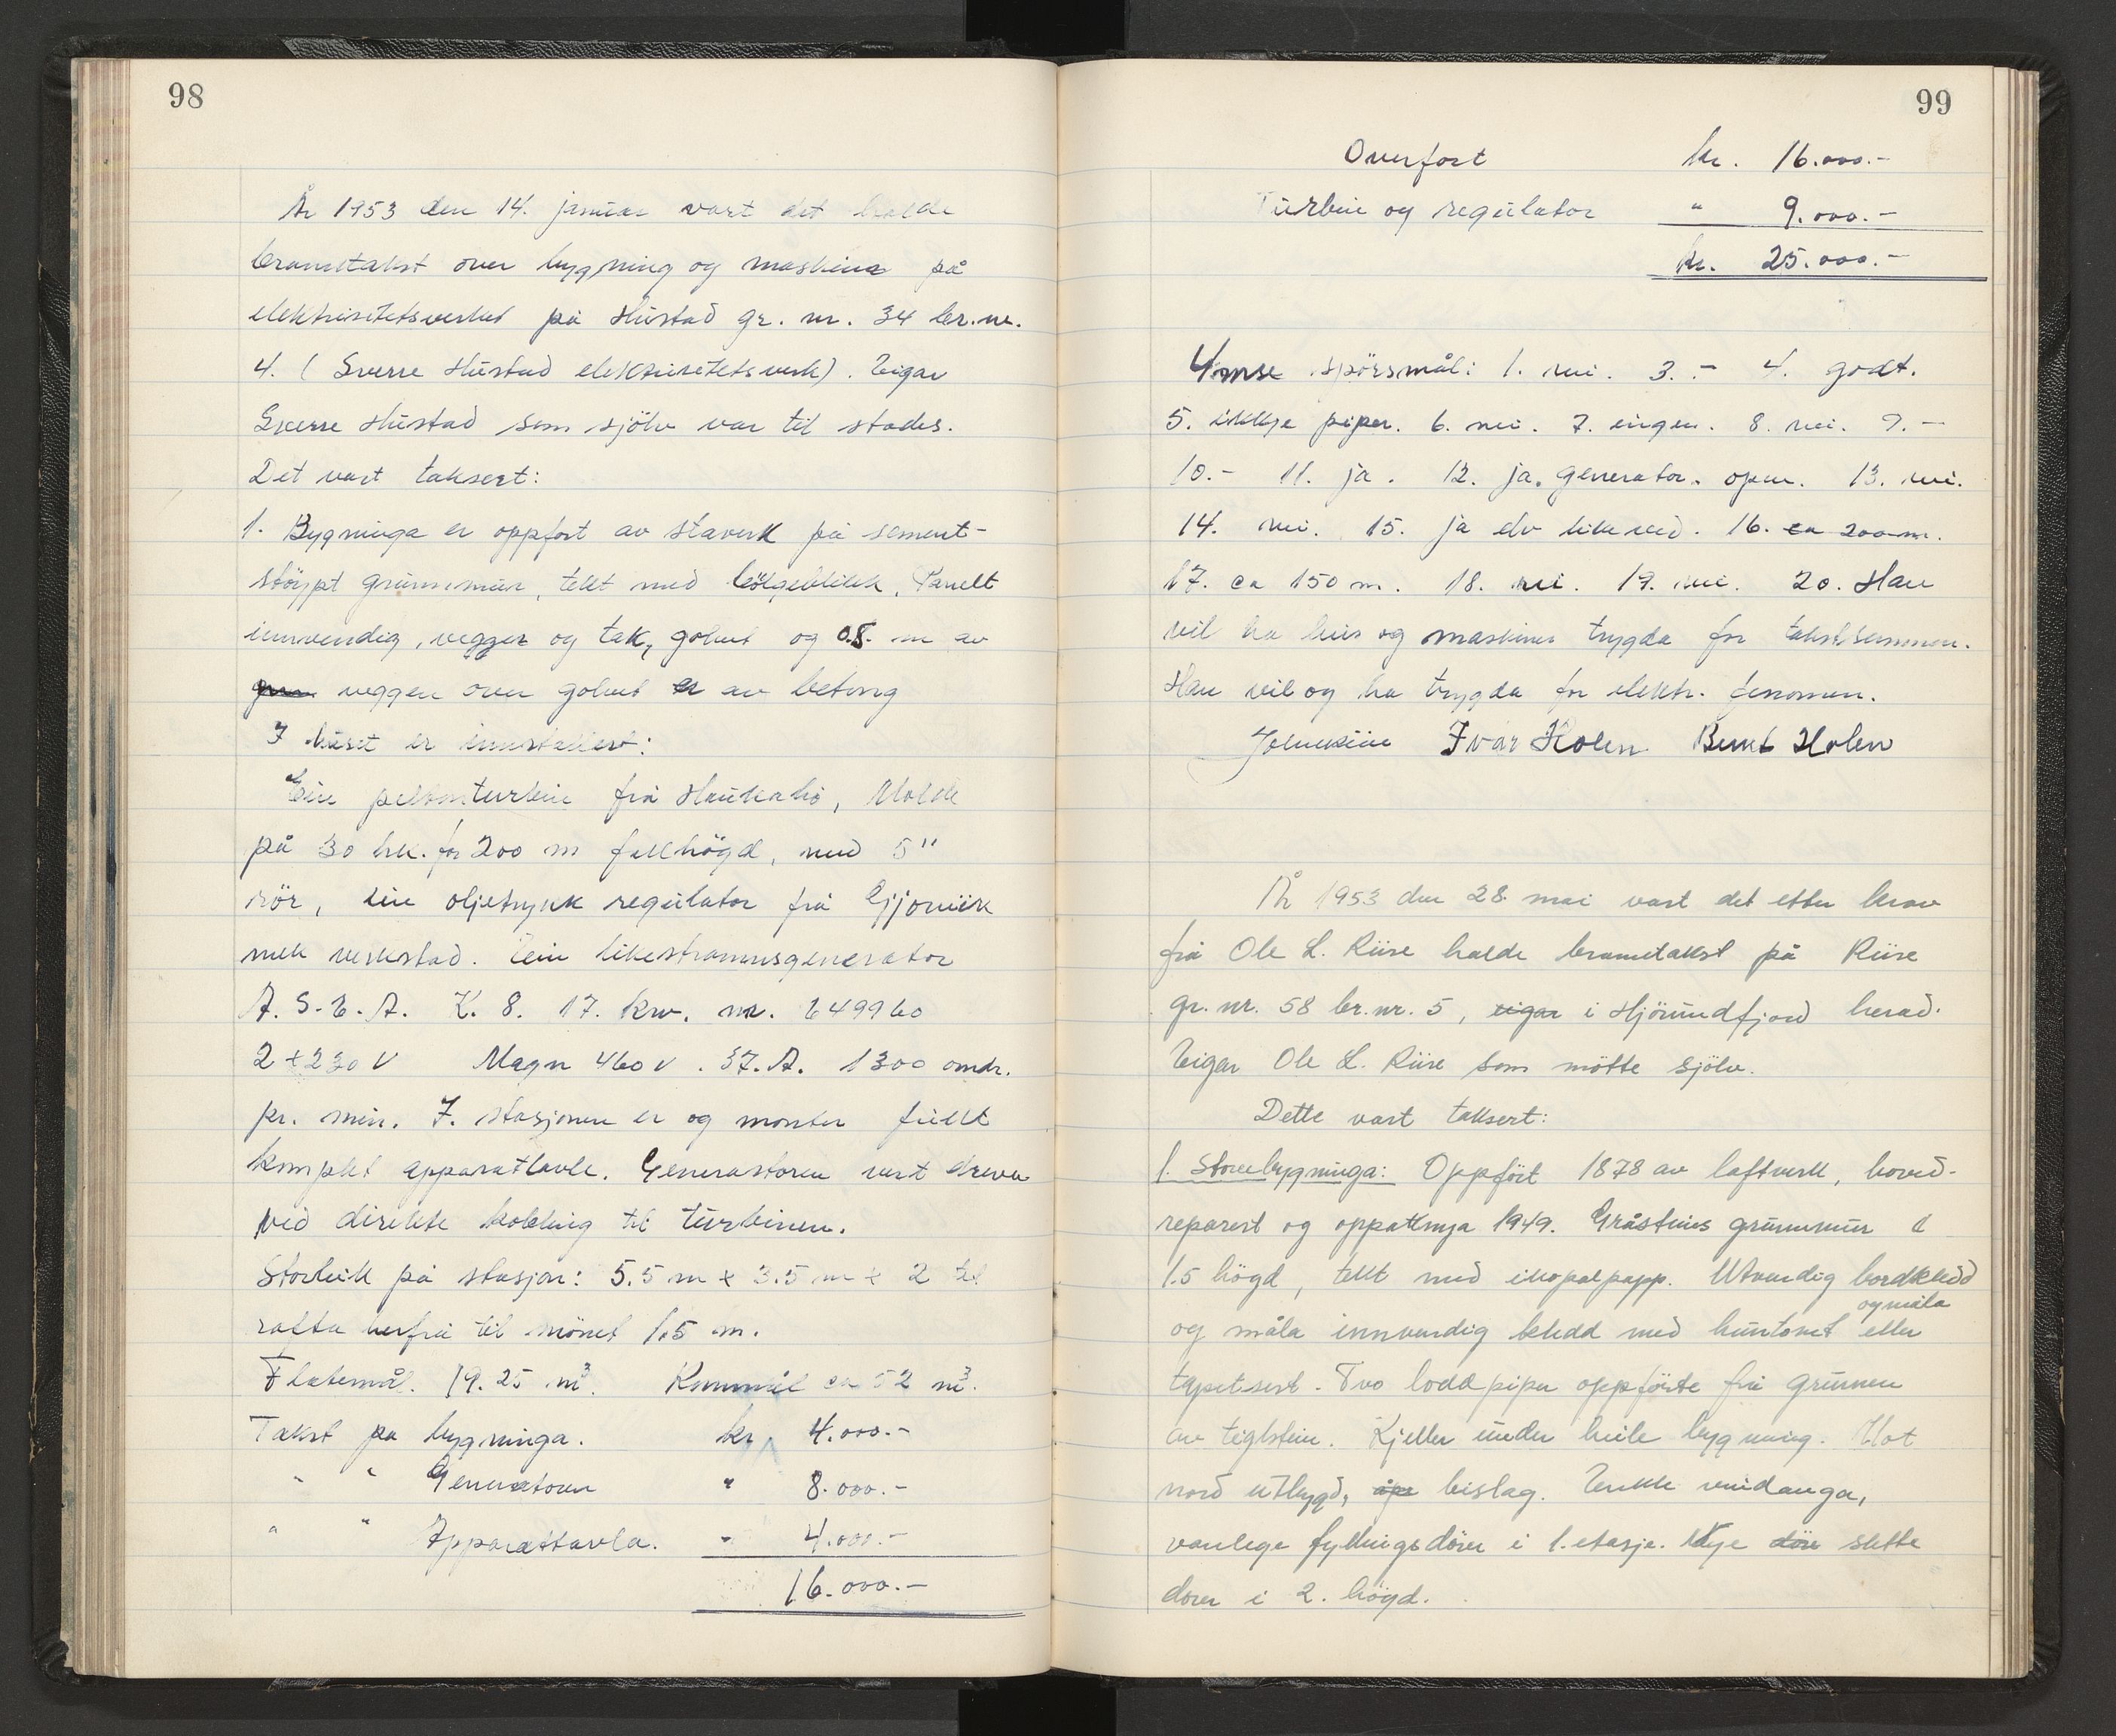 98
År 1953 den 14. januar vart det halde
branntakst over bygning og maskiner på
elektrisitetsverket på Hustad gr. nr. 34 br.nr.
4. (Sverre Hustad elektrisitetsverk). Eigar
Sverre Hustad som sjölv var til stades.
Det vart taksert:
1. Bygninga er oppfört av staverk på sement-
stöypt grunnmur, tekt med bölgeblikk, Panelt
innvendig, vegger og tak, golvet og 0.8. m av
veggen over golvet er av betong
I huset er innstallert:
Ein peltonturbin frå Haukabö, Molde
på 30 hk. for 200 m fallhögd, med 5"
rör, ein oljetrykk regulator frå Gjövik
mek verkstad. Ein likestrømsgenerator
A. S. E. A. K. 8. 17. kw. nr. 649960
2 x 230 V Magn 460 v. 37. A. 1300 omdr.
pr. min. I stasjonen er og monter fullt
komplet apparattavle. Generatoren vert dreven
ved direkte kobling til turbinen.
Storleik på stasjon: 5.5 m x 3.5 m x 2 til
rafta herfrå til mönet 1.5 m.
Flatemål. 19.25 m³. Rommål ca 52 m³.
Takst på bygninga. kr. 4.000.-
" " Generatoren " 8.000.-
" " Apparattavla. " 4.000.-
16.000.-
99
Overfört kr. 16.000.-
Turbin og regulator " 9.000.-
kr. 25.000.-
Ymse spörsmål: 1. nei. 3. - 4. godt.
5. ikkje piper. 6. nei. 7. eingen. 8. nei. 9. -
10.- 11. ja. 12. ja. generator. open. 13. nei.
14. nei. 15. ja elv like ved. 16. ca 200 m.
17. ca 150 m. 18. nei. 19. nei. 20. Han
vil ha hus og maskiner trygda for takstsummen.
Han vil og ha trygda for elektr. fenomen.
Ivar Holen Bernt Holen
År 1953 den 28. mai vart det etter krav
frå Ole L. Riise halde branntakst på Riise
gr. nr. 58 br. nr. 5, eigar i Hjörundfjord herad.
Eigar Ole L. Riise som mötte sjölv.
Dette vart taksert:
1. Stovebygninga: Oppfört 1878 av laftverk, hoved-
reparert og oppattnya 1949. Gråsteins grunnmur á
1.5 högd, tekt med ikopalpapp. Utvendig bordkledd
og måla
og måla innvendig kledd med huntonet eller
tapetsert. Tvo loddpiper oppförte frå grunnen
av teglstein. Kjeller under heile bygning. Mot
nord utbygd, åpe bislag. Enkle vindauga,
vanlege fyllingsdörer i 1. etasje. Nye dörer slette
dörer i 2. högd.